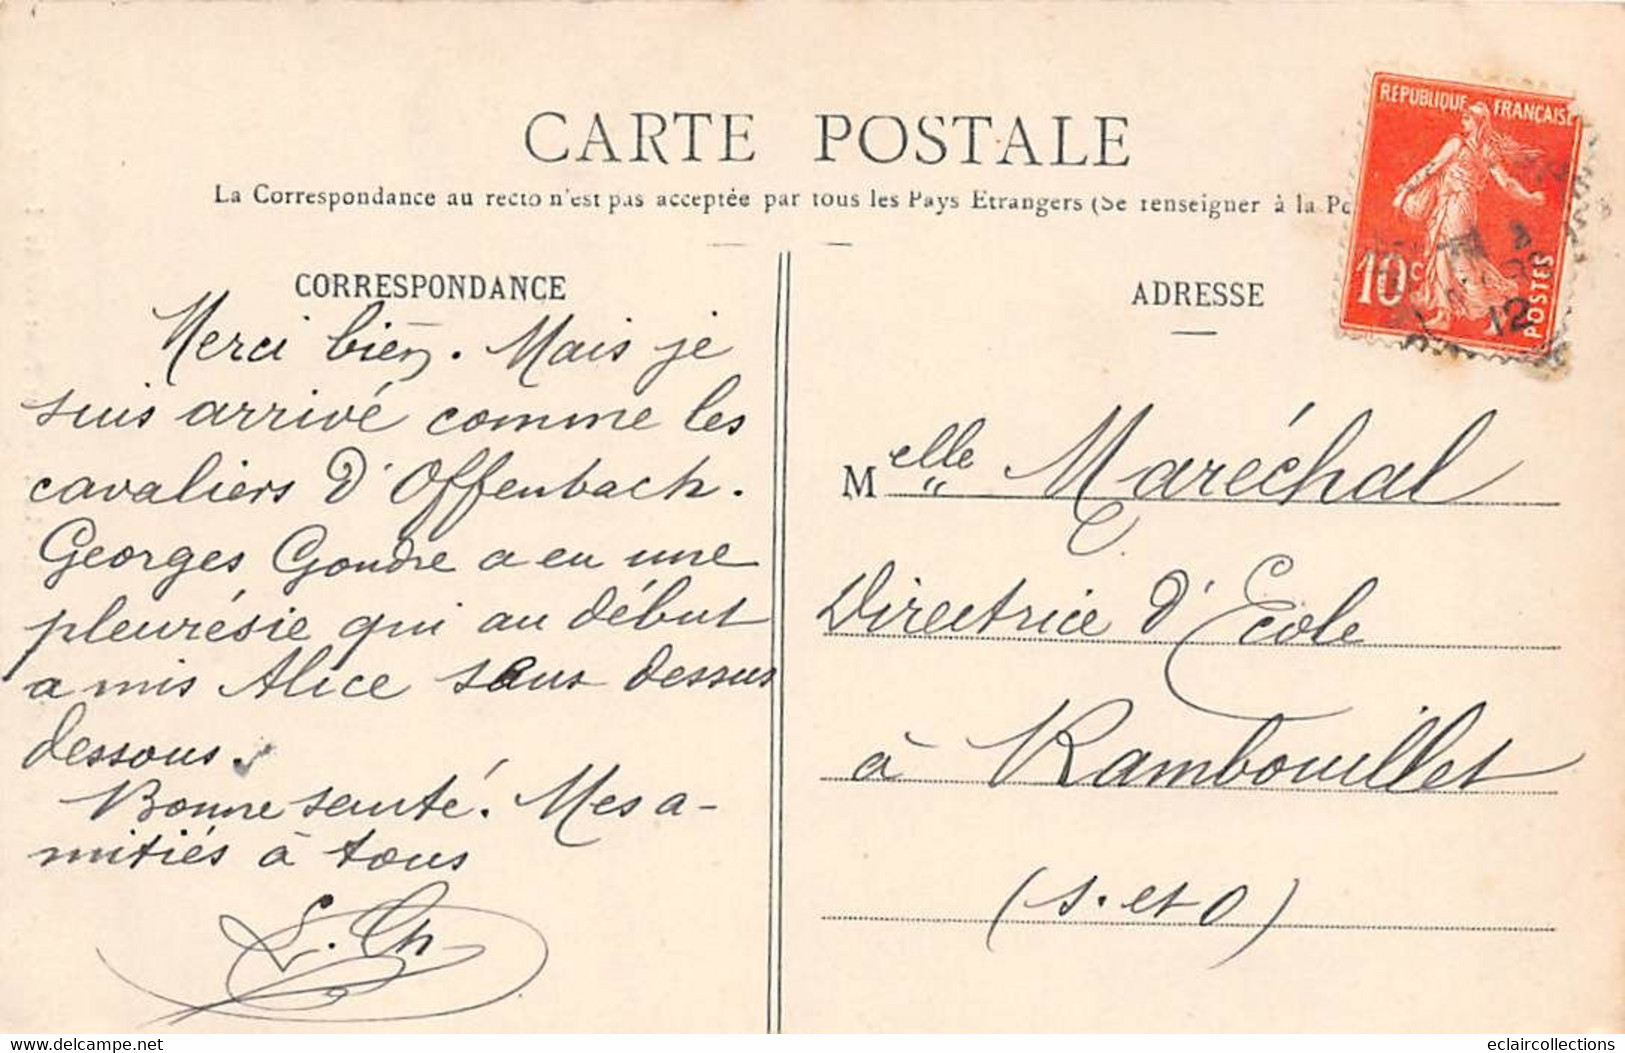 CARTE POSTALE
La Correspondance au recto n'est pas acceptée par tous les Pays Etrangers (Se renseigner à la Po
REPUBLIQUE FRANÇAISE
10c
POSTES
12
CORRESPONDANCE
Merci bien. Mais je
suis arrivé comme les
cavaliers d'Offenbach.
Georges Gondre a eu une
pleurésie qui au début
a mis Alice sens dessus
dessous.
Bonne santé. Mes a-
mitiés à tous
L. Ch
ADRESSE
Melle Maréchal
Directrice d'Ecole
à Rambouillet
(S. et O)
eclaircollections
www.delcampe.net